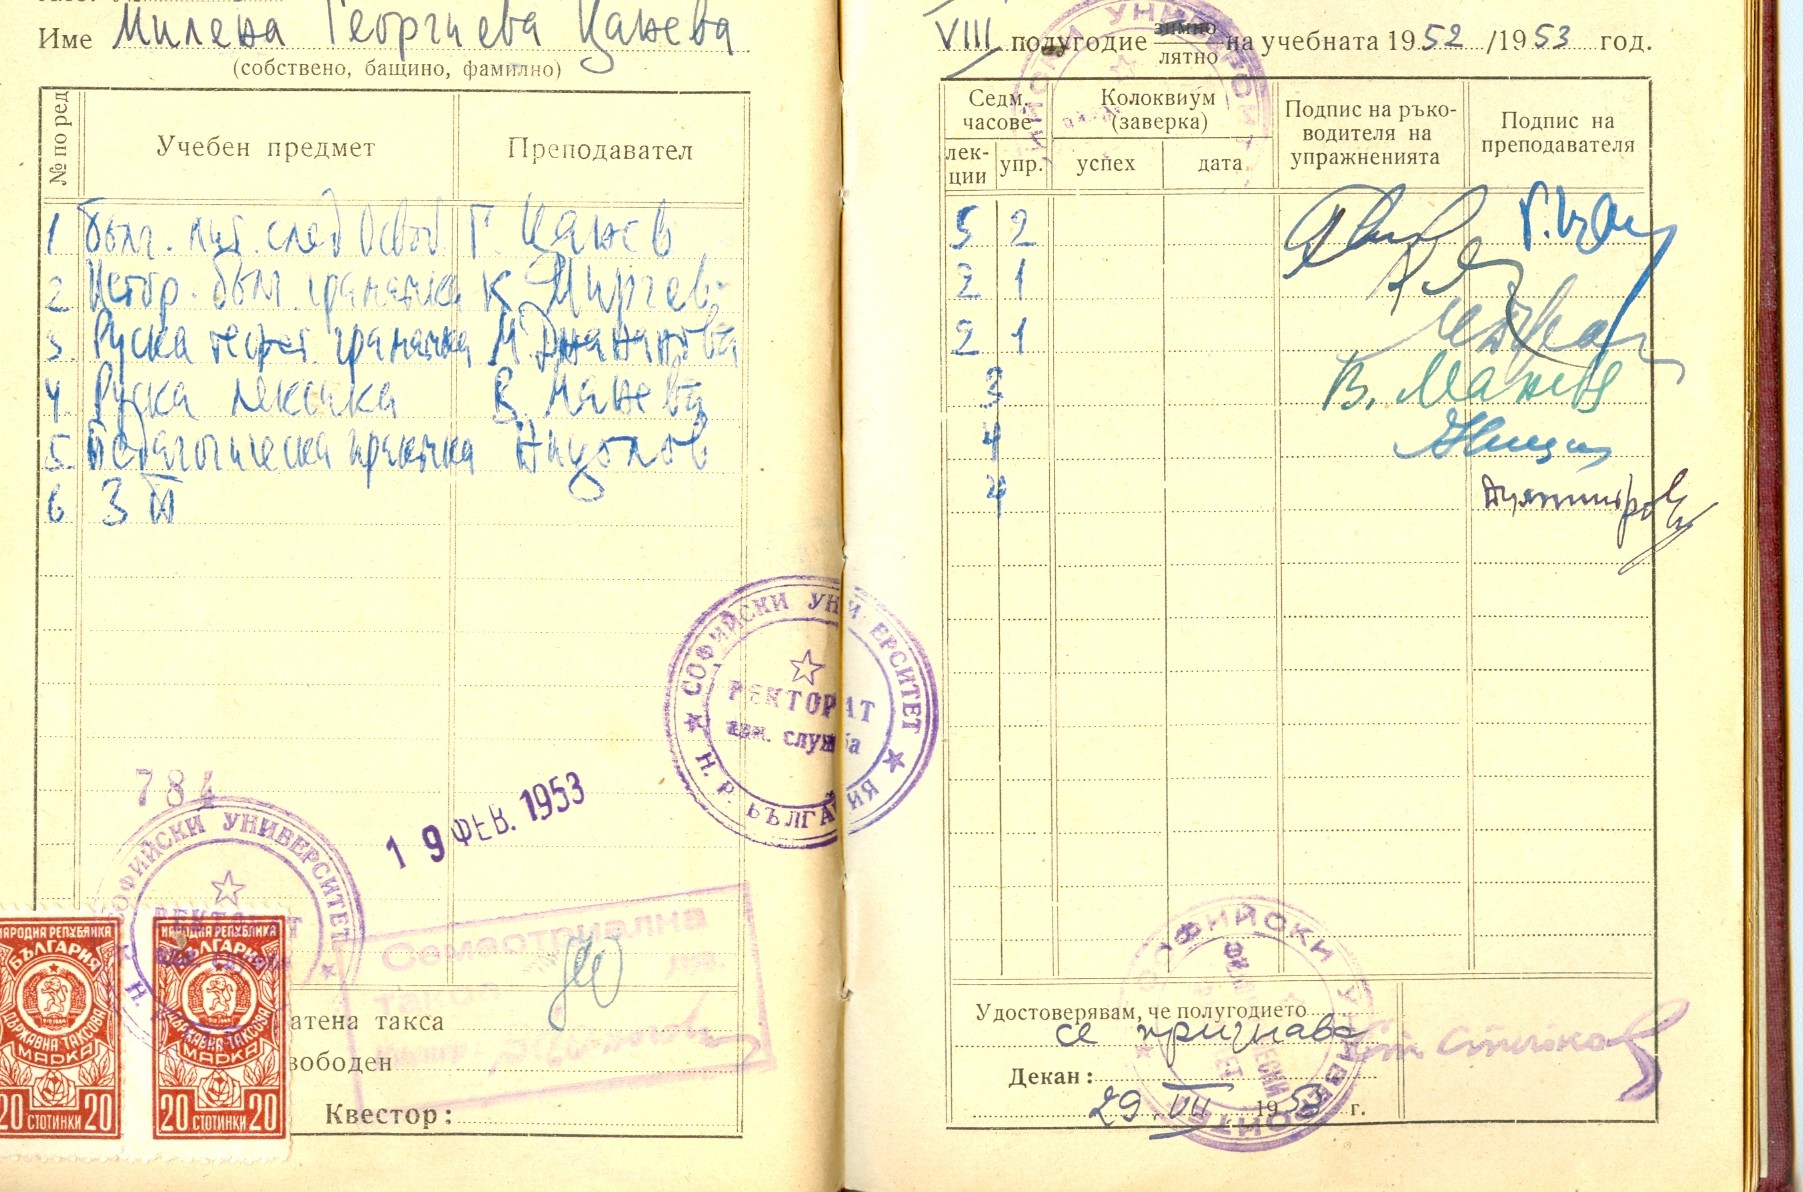 Име Милена Георгиева Цанева
(собствено, бащино, фамилно)
№ по ред
Учебен предмет
Преподавател
1 Бълг. лит. след Освоб. Г. Цанев
2 Истор. бълг. граматика К. Мирчев
3. Руска теорет. граматика
4. Руска лексика В. Манева
5. Педагогическа практика
6 ЗТ
784
19 ФЕВ. 1953
СОФИЙСКИ УНИВЕРСИТЕТ
РЕКТОРАТ
СОФИЙСКИ УНИВЕРСИТЕТ
РЕКТОРАТ
служба
Н. Р. БЪЛГАРИЯ
НАРОДНА РЕПУБЛИКА
БЪЛГАРИЯ
ДЪРЖАВНА ТАКСОВА
МАРКА
20 СТОТИНКИ 20
НАРОДНА РЕПУБЛИКА
БЪЛГАРИЯ
ДЪРЖАВНА ТАКСОВА
МАРКА
20 СТОТИНКИ 20
Семестриална
такса
атена такса
вободен
Квестор:
VIII полугодие зимно лятно на учебната 1952/1953 год.
Седм. часове
Колоквиум (заверка)
Подпис на ръко-
водителя на
упражненията
Подпис на
преподавателя
лек-
ции
упр.
успех
дата
5 2 Г. Цан
2 1
2 1
3 В. Манева
4
4
СОФИЙСКИ УНИВЕРСИТЕТ
Удостоверявам, че полугодието
се признава
Декан:
29 VII 1953 г.